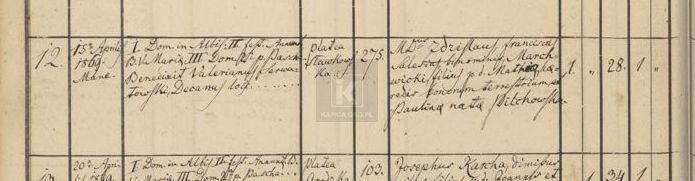 12.
15ta Aprilis
1869.
Mane.
I. Dom. in Albis. II. fest. Annunt.
B. V. Mariæ. III. Dom. p. Pascha
Benedixit Valerianus Serwa-
towski, Decanus loci
platea
Sławkow-
ska
275.
MDnus Zdzislaus Franciscus
Salesius binominis, March-
wicki filius p. d. Mathiæ, hæ-
redis bonorum terrestrium et
Paulinæ natæ Pilchowska
1. " 28. 1 "
K
13.
20a Apri-
1869.
I. Dom. in Albis. II. fest. Annunt. B.
V. Mariæ III. Dom. p. Pascha
Platea
103.
Josephus Karcha,
Joannis et
1. " 34. 1 "